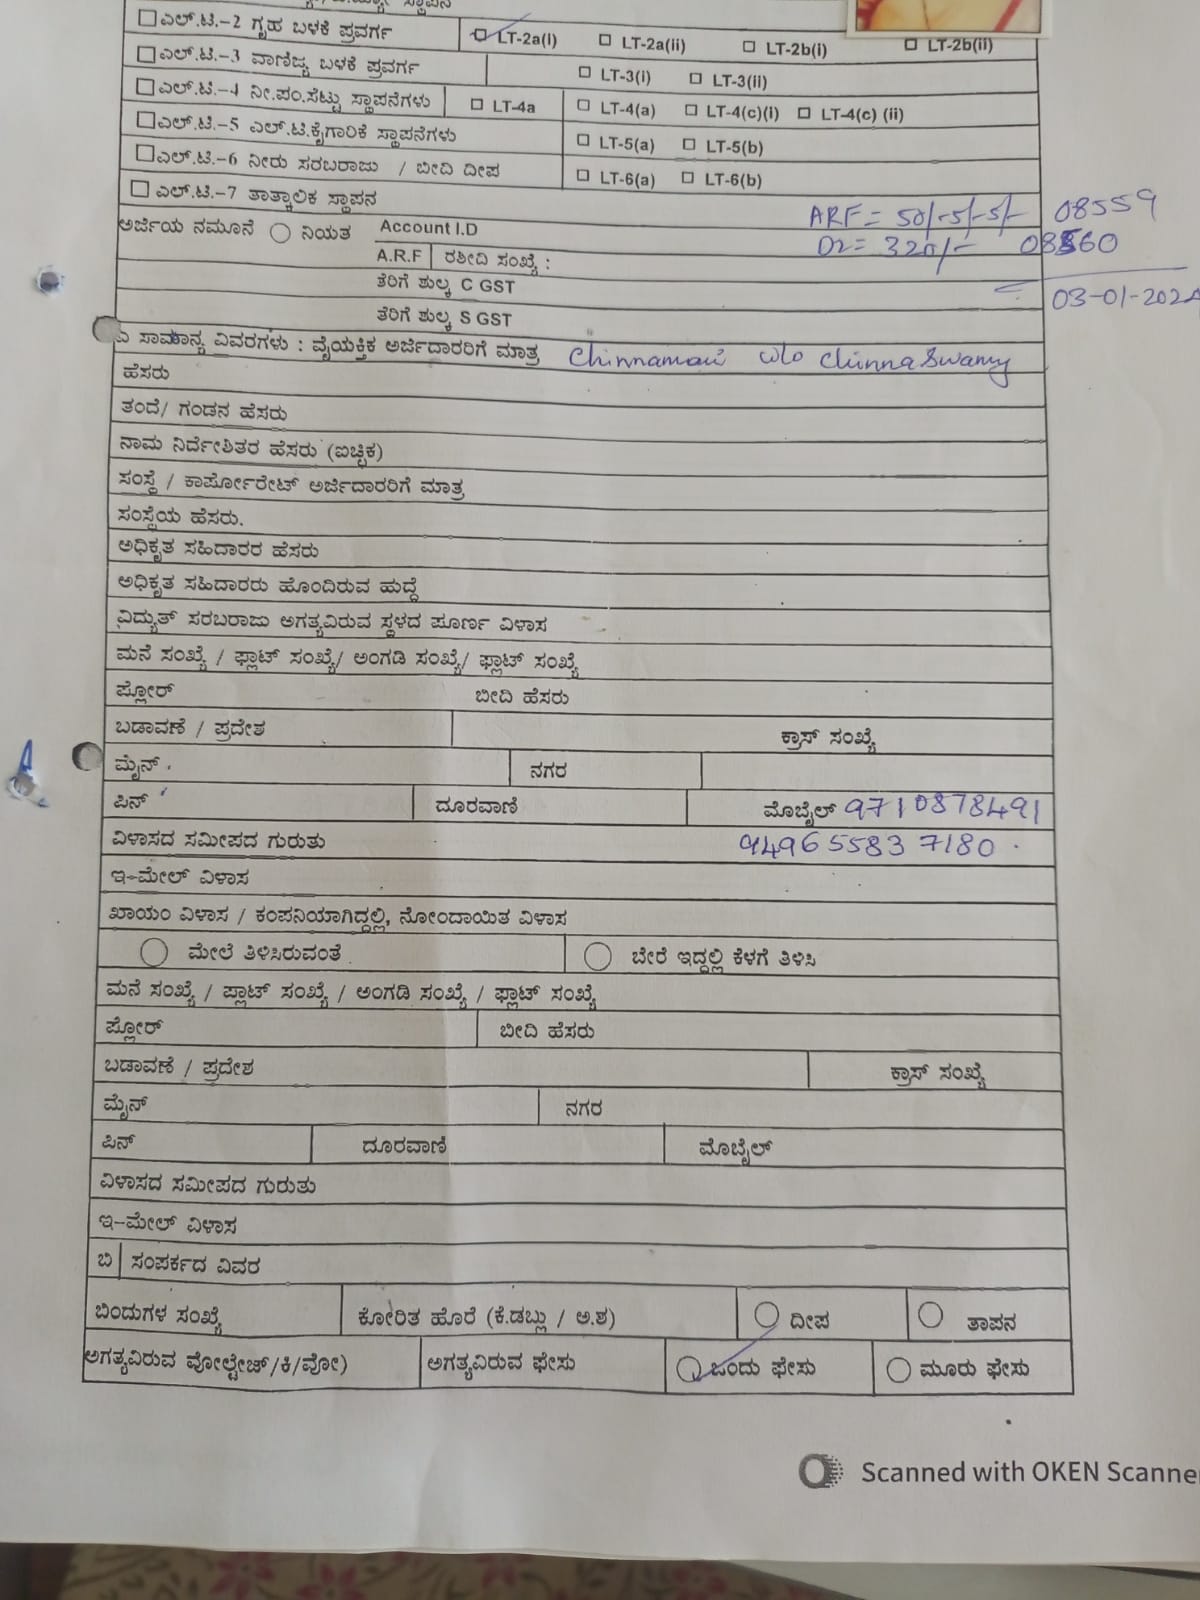 ಸ್ಥಾಪನ
□ ಎಲ್.ಟಿ.-2 ಗೃಹ ಬಳಕೆ ಪ್ರವರ್ಗ □ LT-2a(i) □ LT-2a(ii) □ LT-2b(i) □ LT-2b(ii)
□ ಎಲ್.ಟಿ.-3 ವಾಣಿಜ್ಯ ಬಳಕೆ ಪ್ರವರ್ಗ □ LT-3(i) □ LT-3(ii)
□ ಎಲ್.ಟಿ.-4 ನೀ.ಪಂ.ಸೆಟ್ಟು ಸ್ಥಾಪನೆಗಳು □ LT-4a □ LT-4(a) □ LT-4(c)(i) □ LT-4(c) (ii)
□ ಎಲ್.ಟಿ.-5 ಎಲ್.ಟಿ.ಕೈಗಾರಿಕೆ ಸ್ಥಾಪನೆಗಳು □ LT-5(a) □ LT-5(b)
□ ಎಲ್.ಟಿ.-6 ನೀರು ಸರಬರಾಜು / ಬೀದಿ ದೀಪ □ LT-6(a) □ LT-6(b)
□ ಎಲ್.ಟಿ.-7 ತಾತ್ಕಾಲಿಕ ಸ್ಥಾಪನ
ARF = 50/-5/-5/- 08559
ಅರ್ಜಿಯ ನಮೂನೆ ○ ನಿಯತ Account I.D
= 320/- 08560
A.R.F ರಶೀದಿ ಸಂಖ್ಯೆ :
ತೆರಿಗೆ ಶುಲ್ಕ C GST
03-01-2024
ತೆರಿಗೆ ಶುಲ್ಕ S GST
ಎ ಸಾಮಾನ್ಯ ವಿವರಗಳು : ವೈಯಕ್ತಿಕ ಅರ್ಜಿದಾರರಿಗೆ ಮಾತ್ರ Chinnamari w/o Chinna Swamy
ಹೆಸರು
ತಂದೆ/ ಗಂಡನ ಹೆಸರು
ನಾಮ ನಿರ್ದೇಶಿತರ ಹೆಸರು (ಐಚ್ಛಿಕ)
ಸಂಸ್ಥೆ / ಕಾರ್ಪೋರೇಟ್ ಅರ್ಜಿದಾರರಿಗೆ ಮಾತ್ರ
ಸಂಸ್ಥೆಯ ಹೆಸರು.
ಅಧಿಕೃತ ಸಹಿದಾರರ ಹೆಸರು
ಅಧಿಕೃತ ಸಹಿದಾರರು ಹೊಂದಿರುವ ಹುದ್ದೆ
ವಿದ್ಯುತ್ ಸರಬರಾಜು ಅಗತ್ಯವಿರುವ ಸ್ಥಳದ ಪೂರ್ಣ ವಿಳಾಸ
ಮನೆ ಸಂಖ್ಯೆ / ಫ್ಲಾಟ್ ಸಂಖ್ಯೆ/ ಅಂಗಡಿ ಸಂಖ್ಯೆ/ ಫ್ಲಾಟ್ ಸಂಖ್ಯೆ
ಫ್ಲೋರ್ ಬೀದಿ ಹೆಸರು
ಬಡಾವಣೆ / ಪ್ರದೇಶ ಕ್ರಾಸ್ ಸಂಖ್ಯೆ
ಮೈನ್ ನಗರ
ಪಿನ್ ದೂರವಾಣಿ ಮೊಬೈಲ್ 9710878491
ವಿಳಾಸದ ಸಮೀಪದ ಗುರುತು 9496 5583 7180
ಇ-ಮೇಲ್ ವಿಳಾಸ
ಖಾಯಂ ವಿಳಾಸ / ಕಂಪನಿಯಾಗಿದ್ದಲ್ಲಿ, ನೋಂದಾಯಿತ ವಿಳಾಸ
○ ಮೇಲೆ ತಿಳಿಸಿರುವಂತೆ ○ ಬೇರೆ ಇದ್ದಲ್ಲಿ ಕೆಳಗೆ ತಿಳಿಸಿ
ಮನೆ ಸಂಖ್ಯೆ / ಪ್ಲಾಟ್ ಸಂಖ್ಯೆ / ಅಂಗಡಿ ಸಂಖ್ಯೆ / ಫ್ಲಾಟ್ ಸಂಖ್ಯೆ
ಫ್ಲೋರ್ ಬೀದಿ ಹೆಸರು
ಬಡಾವಣೆ / ಪ್ರದೇಶ ಕ್ರಾಸ್ ಸಂಖ್ಯೆ
ಮೈನ್ ನಗರ
ಪಿನ್ ದೂರವಾಣಿ ಮೊಬೈಲ್
ವಿಳಾಸದ ಸಮೀಪದ ಗುರುತು
ಇ-ಮೇಲ್ ವಿಳಾಸ
ಬಿ ಸಂಪರ್ಕದ ವಿವರ
ಬಿಂದುಗಳ ಸಂಖ್ಯೆ ಕೋರಿತ ಹೊರೆ (ಕೆ.ಡಬ್ಲು / ಅ.ಶ) ○ ದೀಪ ○ ತಾಪನ
ಅಗತ್ಯವಿರುವ ವೋಲ್ಟೇಜ್/ಕಿ/ವೋ) ಅಗತ್ಯವಿರುವ ಫೇಸು ○ ಒಂದು ಫೇಸು ○ ಮೂರು ಫೇಸು
Scanned with OKEN Scanne